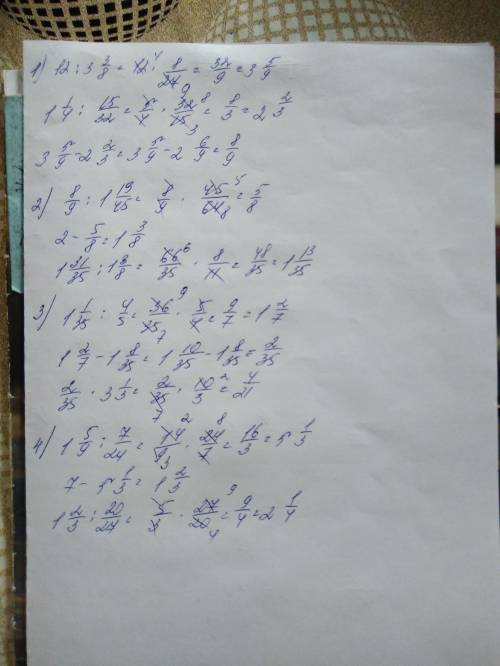 1) 12 : 3 3/8 = 12 · 8/27 = 32/9 = 3 5/9
1 1/4 : 15/32 = 5/4 · 32/15 = 8/3 = 2 2/3
3 5/9 - 2 2/3 = 3 5/9 - 2 6/9 = 8/9
2) 8/9 : 1 19/45 = 8/9 · 45/64 = 5/8
2 - 5/8 = 1 3/8
1 31/35 : 1 3/8 = 66/35 · 8/11 = 48/35 = 1 13/35
3) 1 1/35 : 4/5 = 36/35 · 5/4 = 9/7 = 1 2/7
1 2/7 - 1 8/35 = 1 10/35 - 1 8/35 = 2/35
2/35 · 3 1/3 = 2/35 · 10/3 = 4/21
4) 1 5/9 : 7/24 = 14/9 · 24/7 = 16/3 = 5 1/3
7 - 5 1/3 = 1 2/3
1 2/3 : 20/27 = 5/3 · 27/20 = 9/4 = 2 1/4